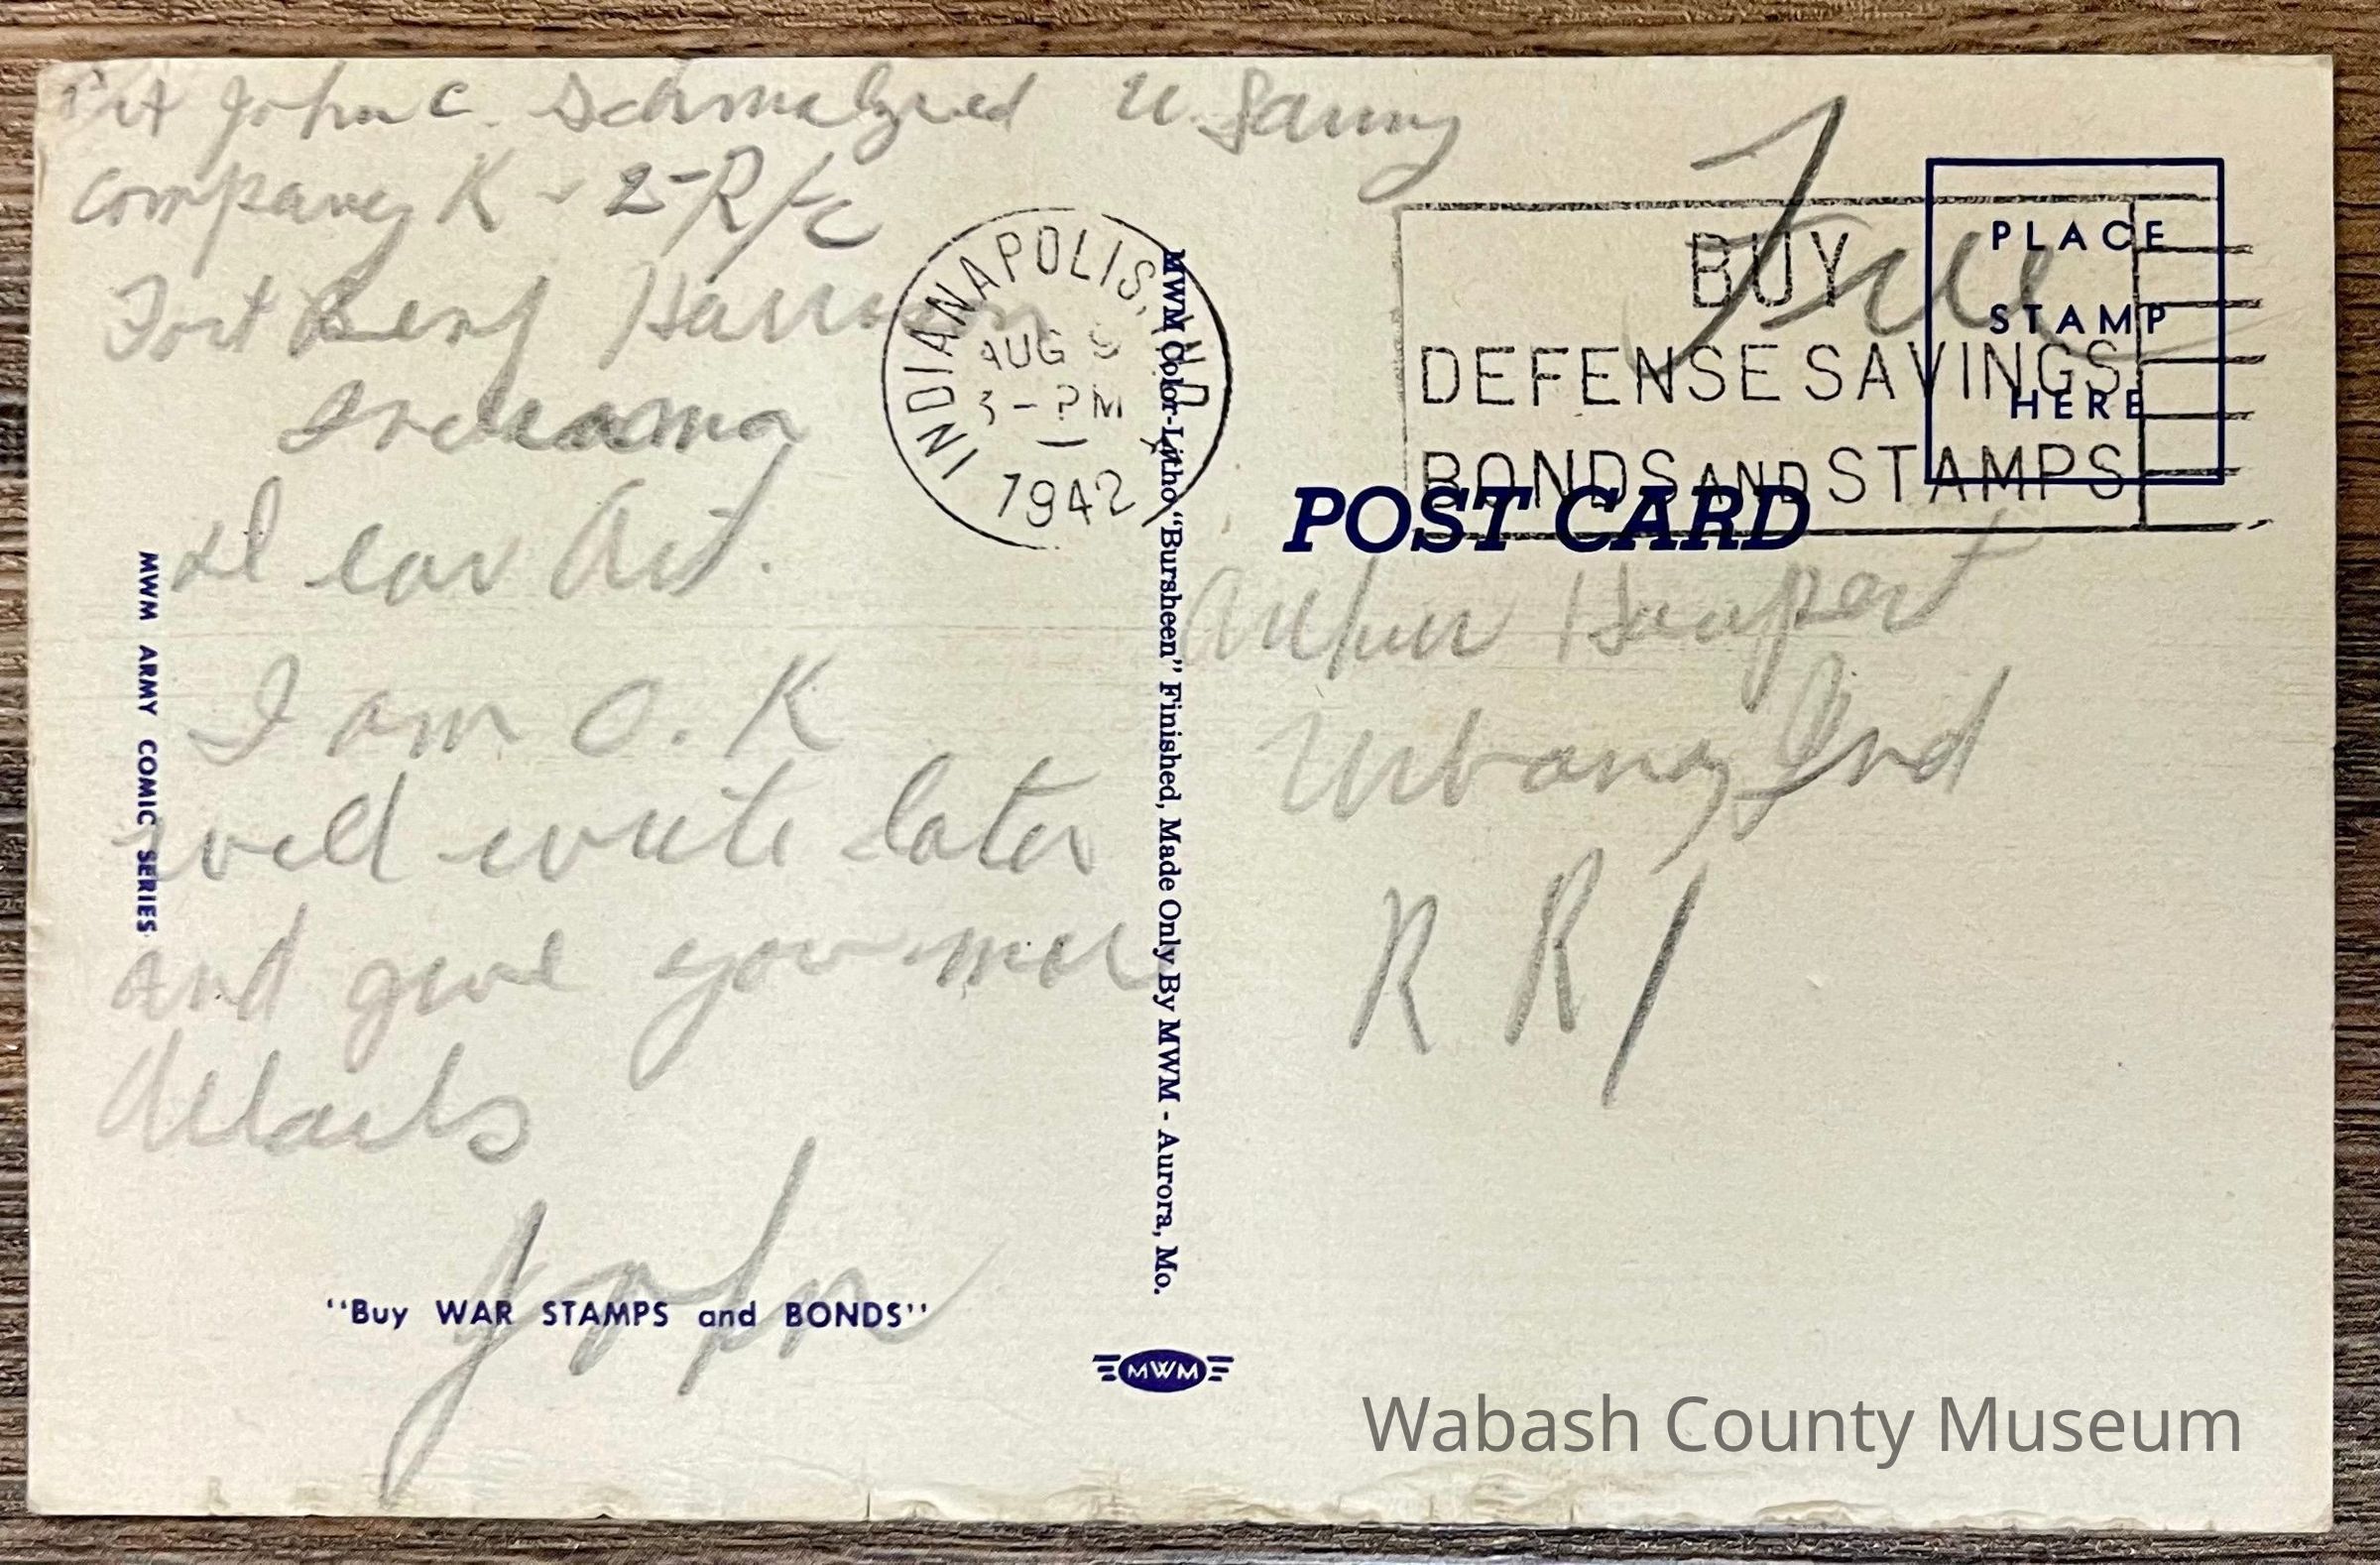 Pvt John C. Schmalzried U.S army
Company K - 2-R/c
Fort Benj Harrison
Indiana
Dear Art.
I am O.K
will write later
and give you more
details
John
Free
Arthur Haupert
Urbana, Ind
R R 1
INDIANAPOLIS, IND
AUG 9
3-PM
1942
BUY
DEFENSE SAVINGS
BONDS AND STAMPS
PLACE
STAMP
HERE
POST CARD
MWM ARMY COMIC SERIES
MWM Color-Litho "Bursheen" Finished, Made Only By MWM - Aurora, Mo.
"Buy WAR STAMPS and BONDS"
MWM
Wabash County Museum